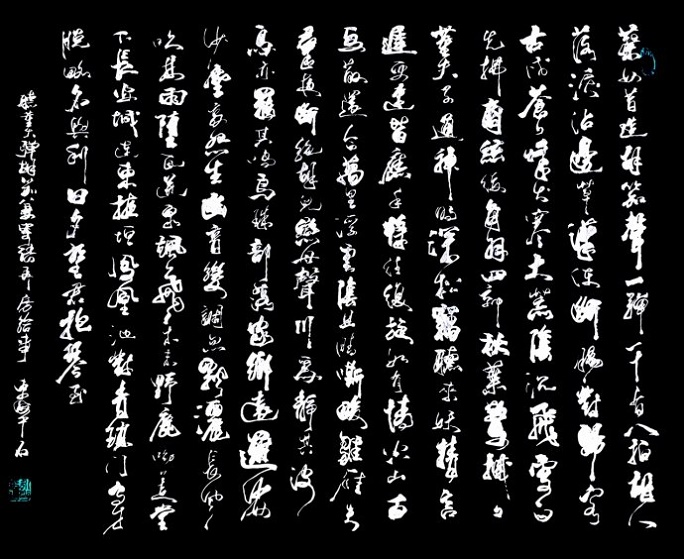 蔡女昔造胡笳聲一彈一十有八拍胡人
落淚沾邊草漢使斷腸對歸客
古戍蒼蒼烽火寒大荒陰沉飛雪白
先拂商弦後角羽四郊秋葉驚摵摵
董夫子通神明深松竊聽來妖精言
遲更速皆應手將往復旋如有情空山百
鳥散還合萬里浮雲陰且晴嘶酸雛雁失
群夜斷絕胡兒戀母聲川為靜其波
鳥亦罷其鳴烏珠部落家鄉遠邏娑
沙塵哀怨生幽音變調忽飄灑長風
吹林雨墮瓦迸泉颯颯飛木末野鹿呦呦走堂
下長安城連東掖垣鳳凰池對青瑣門高才
脫略名與利日夕望君抱琴至
聽董大彈胡笳兼寄語弄房給事